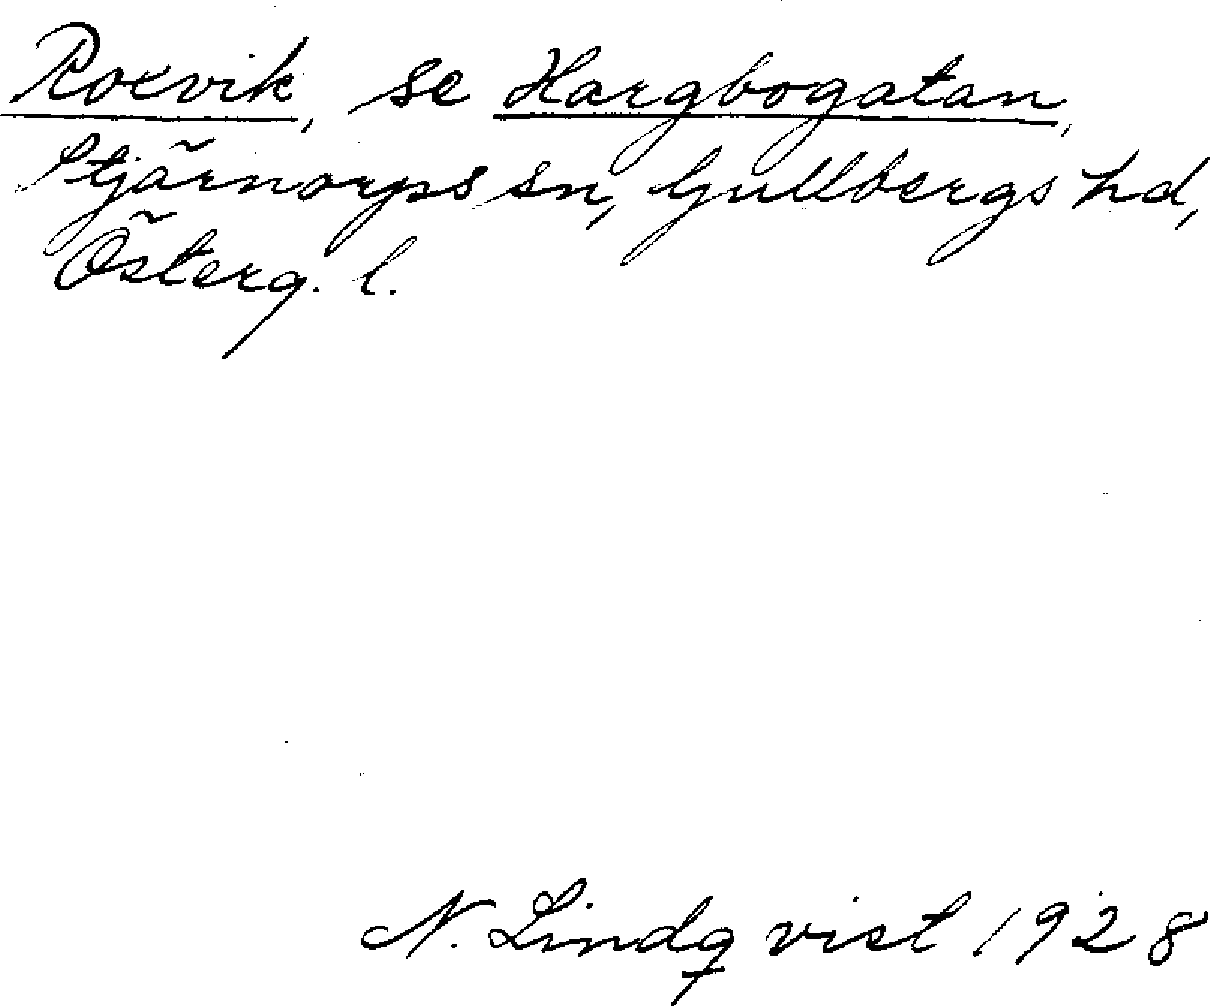 Roxvik, se Hargbogatan,
Stjärnorps sn, Gullbergs hd,
Österg. l.
N. Lindqvist 1928